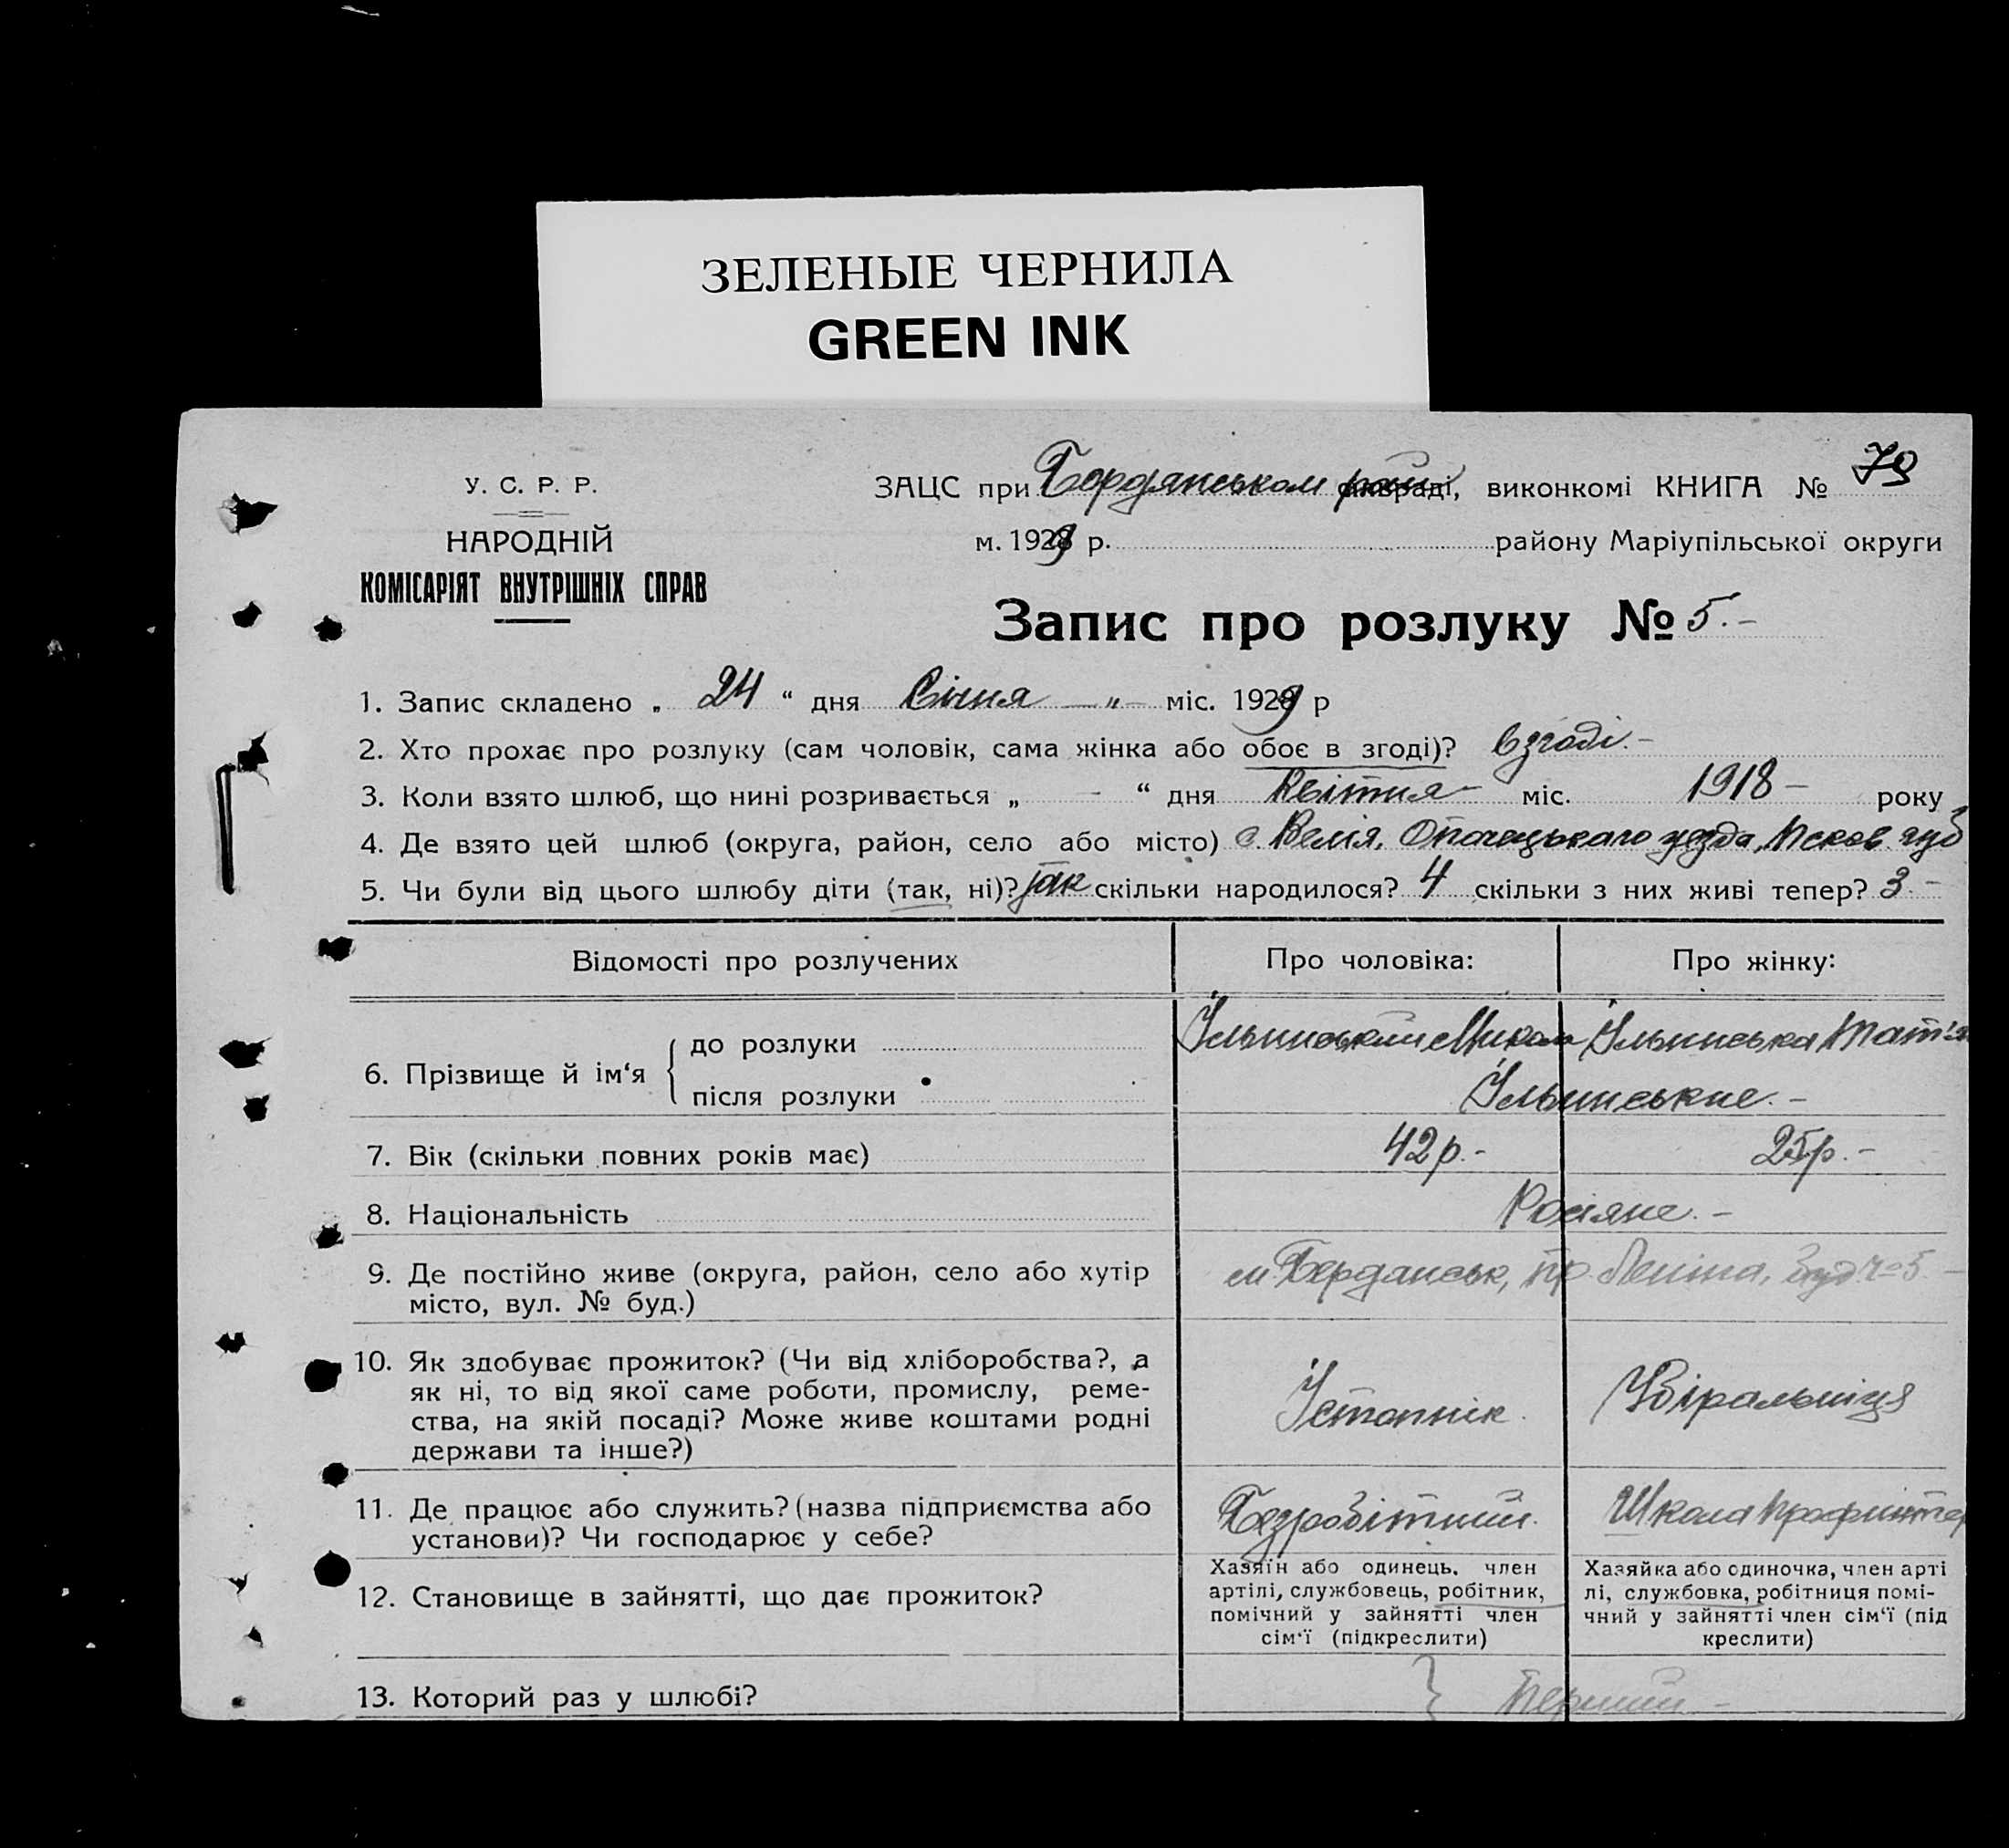 ЗЕЛЕНЫЕ ЧЕРНИЛА
GREEN INK
У. С. Р. Р.
НАРОДНІЙ
КОМІСАРІЯТ ВНУТРІШНІХ СПРАВ
ЗАЦС при Бердянськом рай виконкомі КНИГА № 79
м. 1929 р. району Маріупільської округи
Запис про розлуку № 5.-
1. Запис складено „ 24 “ дня Січня — „ — міс. 1929 р
2. Хто прохає про розлуку (сам чоловік, сама жінка або обоє в згоді)? в згоді.-
3. Коли взято шлюб, що нині розривається „ - “ дня Квітня- міс. 1918 - року
4. Де взято цей шлюб (округа, район, село або місто) с. Велія, Опочецькаго уезда, Псков. губ
5. Чи були від цього шлюбу діти (так, ні)? так скільки народилося? 4 скільки з них живі тепер? 3.-
Відомості про розлучених Про чоловіка: Про жінку:
6. Прізвище й ім‘я
до розлуки Ільинський Микола Ільинська
після розлуки Ільинськие.-
7. Вік (скільки повних років має) 42 р.- 25 р.-
8. Національність Росіяне.-
9. Де постійно живе (округа, район, село або хутір
місто, вул. № буд.) м Бердянськ, пр. Леніна, буд № 5 -
10. Як здобуває прожиток? (Чи від хліборобства?, а
як ні, то від якої саме роботи, промислу, реме-
ства, на якій посаді? Може живе коштами родні
держави та інше?)
Істопнік. Убіральніця
11. Де працює або служить? (назва підприємства або
установи)? Чи господарює у себе?
Безробітний. Школа Профинтер
12. Становище в зайнятті, що дає прожиток?
Хазяїн або одинець, член
артілі, службовець, робітник,
помічний у зайнятті член
сім‘ї (підкреслити)
Хазяйка або одиночка, член арті
лі, службовка, робітниця помі-
чний у зайнятті член сім‘ї (під
креслити)
13. Которий раз у шлюбі? } Перший -